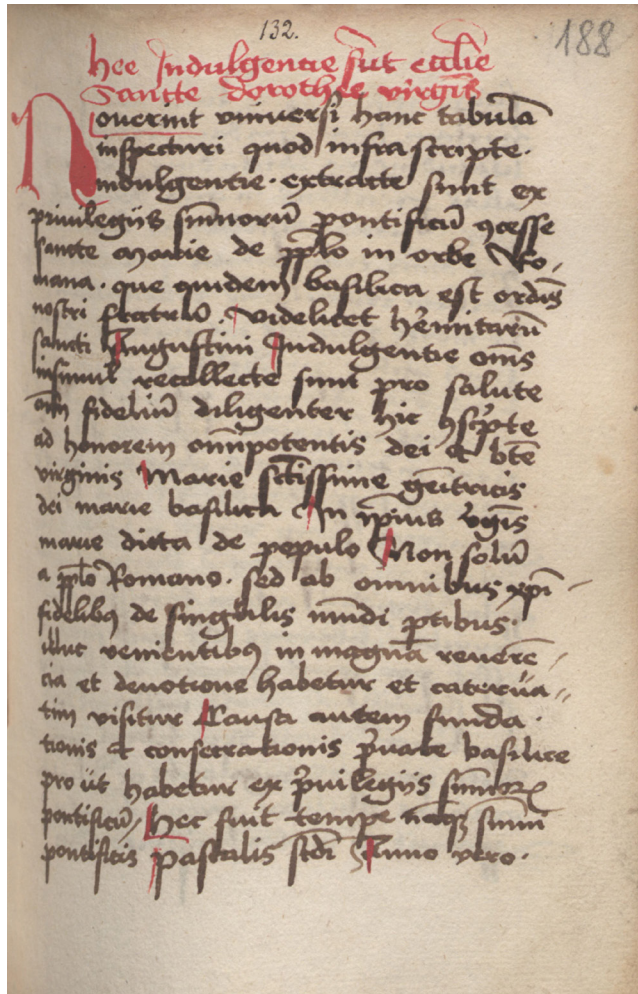 132.
188
hee Indulgentie sūt ecclīe
Sancte dorothee virgīs
Nouerint vniuersi hanc tabulā
inspecturi quod infra scripte.
Indulgentie. extracte sunt ex
priuilegijs sūmorū pontificū ꝯcesse
sancte Marie de pplo in orbe Ro-
mana. que quidem basilica est ordīs
nostri fratrū. videlicet heremitarū
sancti Augustini Indulgentie oms
insimul recollecte sunt pro salute
fideliū diligenter hic ꝯscpte
ad honorem omīpotentis dei et bte
virginis Marie sctissime genitricis
dei marie basilica In ipius vgīs
marie dicta de populo Non solū
a pplo Romano. sed ab omnibus xpi-
fidelibꝰ de singulis mūdi ptibus.
illuc venientibꝰ in magna reuerē-
cia et deuotione habetur et caterua-
tim visitur Causa autem funda.
tionis et consecrationis basilice
pro ut habetur ex priuilegijs sūmoꝝ
pontificū, Hec fuit tempe sūmi
pontificis Pascalis scdi Anno vero.